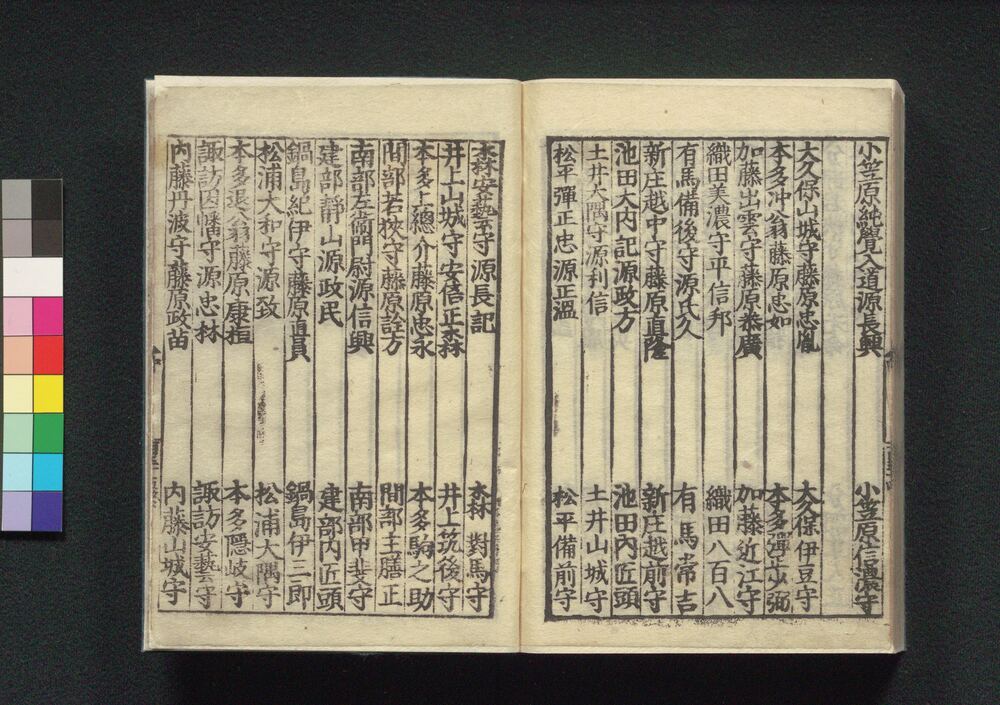 小笠原純覽入道源長興 小笠原信濃守
大久保山城守藤原忠胤 大久保伊豆守
本多冲翁藤原忠如 本多彈正少弼
加藤出雲守藤原泰廣 加藤近江守
織田美濃守平信邦 織田八百八
有馬備後守源氏久 有馬常吉
新庄越中守藤原直隆 新庄越前守
池田大内記源政方 池田内匠頭
土井大隅守源利信 土井山城守
松平彈正忠源正溫 松平備前守
森安藝守源長記 森對馬守
井上山城守安倍正森 井上筑後守
本多上總介藤原忠永 本多駒之助
間部若狹守藤原詮方 間部主膳正
南部左衞門尉源信興 南部甲斐守
建部靜山源政民 建部内匠頭
鍋島紀伊守藤原直員 鍋島伊三郎
松浦大和守源致 松浦大隅守
本多退翁藤原康桓 本多隱岐守
諏訪因幡守源忠林 諏訪安藝守
内藤丹波守藤原政苗 内藤山城守